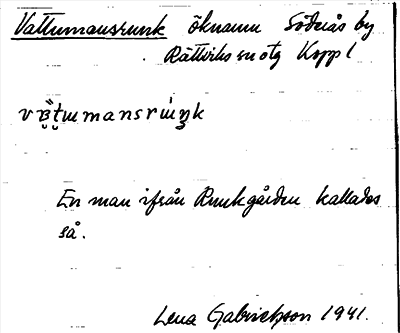 Vattumansrunk öknamn Söderås by
Rättviks sn otg Koppl
vʙ̈t̬ɯmansrɯ́ŋk
En man ifrån Runkgården kallades
så.
Lena Gabrielsson 1941.